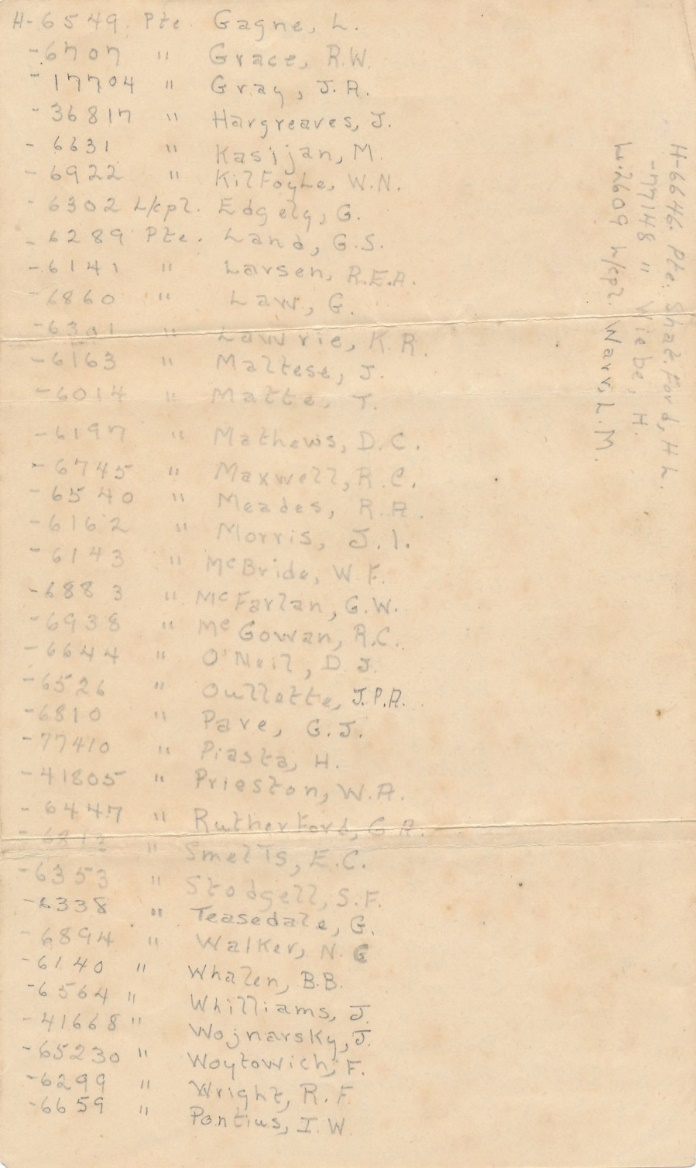 H-6549 Pte Gagne, L.
-6707 " Grace, R.W.
-17704 " Gray, J.A.
-36817 " Hargreaves, J.
-6631 " Kasijan, M.
-6922 " Kilfoyle, W.N.
-6302 L/cpl. Edgely, G.
-6289 Pte. Land, G.S.
-6141 " Larsen, R.E.A.
-6860 " Law, G.
Lawrie, K.R.
-6163 " Maltese, J.
-6014 " Matte, T.
-6197 " Mathews, D.C.
-6745 " Maxwell, R.C.
-6540 " Meades, R.A.
-6162 " Morris, J.I.
-6143 " McBride, W.F.
-6883 " McFarlan, G.W.
-6938 " McGowan, R.C.
-6644 " O'Neil, D.J.
-6526 " Oullette, J.P.A.
-6810 " Pave, G.J.
-77410 " Piasta, H.
-41805 " Prieston, W.A.
-6447 " Rutherford, G.A.
" Smelts, E.C.
-6353 " Stodgell, S.F.
-6338 " Teasedale, G.
-6894 " Walker, N.G
-6140 " Whalen, B.B.
-6564 " Whilliams, J.
-41668 " Wojnarsky, J.
-65230 " Woytowich, F.
-6299 " Wright, R.F.
-6659 " Pontius, I.W
H-6646 Pte. Shatford, H.L.
-77148 " Wiebe, H.
L/cpl. Warr, L.M.